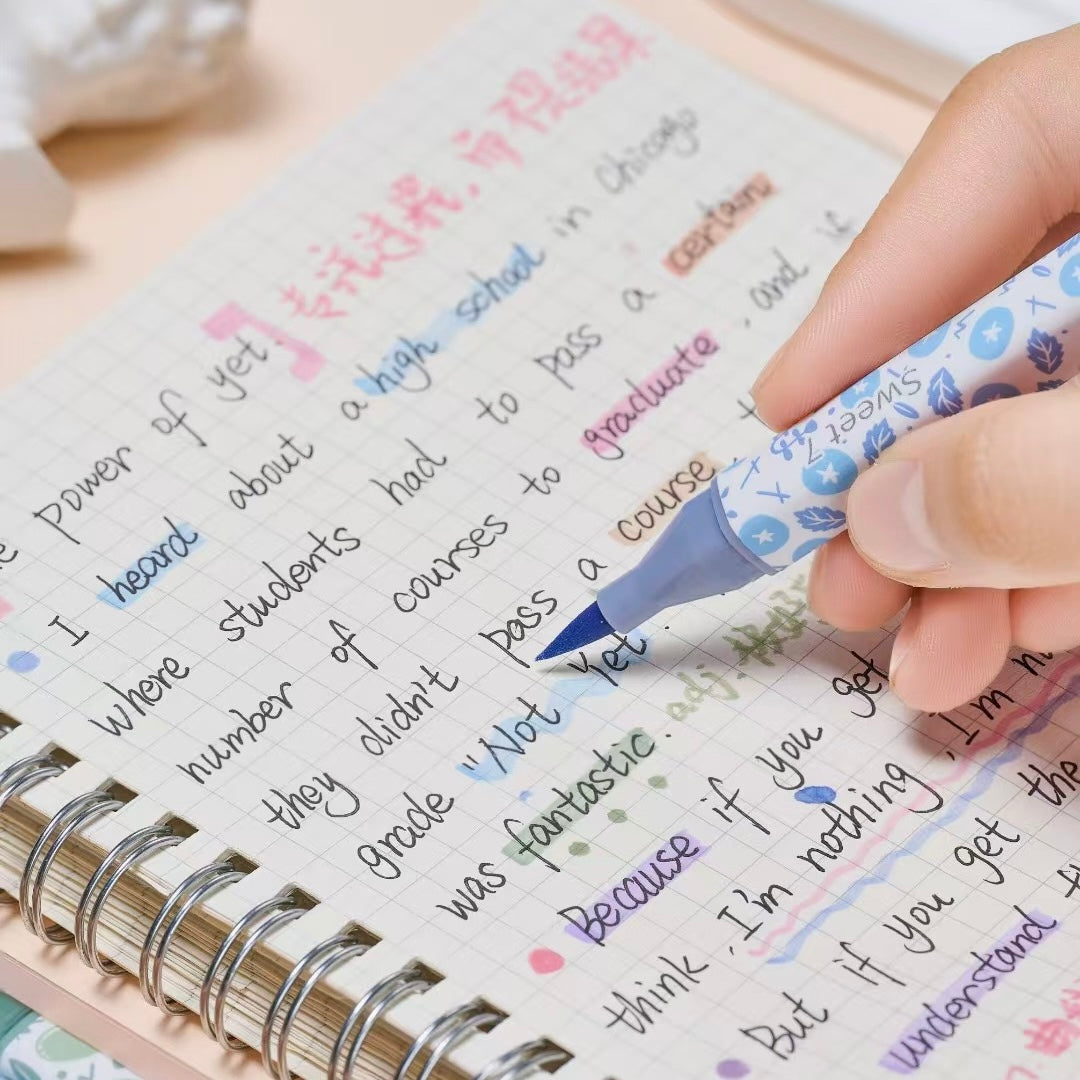 power of yet. 专注过程,而结果
I heard about a high school in Chicago
where students had to pass a certain
number of courses to graduate, and if
they didn't pass a course
grade "Not Yet".
was fantastic. adj.
Because if you get
think, I'm nothing, I'm
But if you get the
understand
Sweet 7